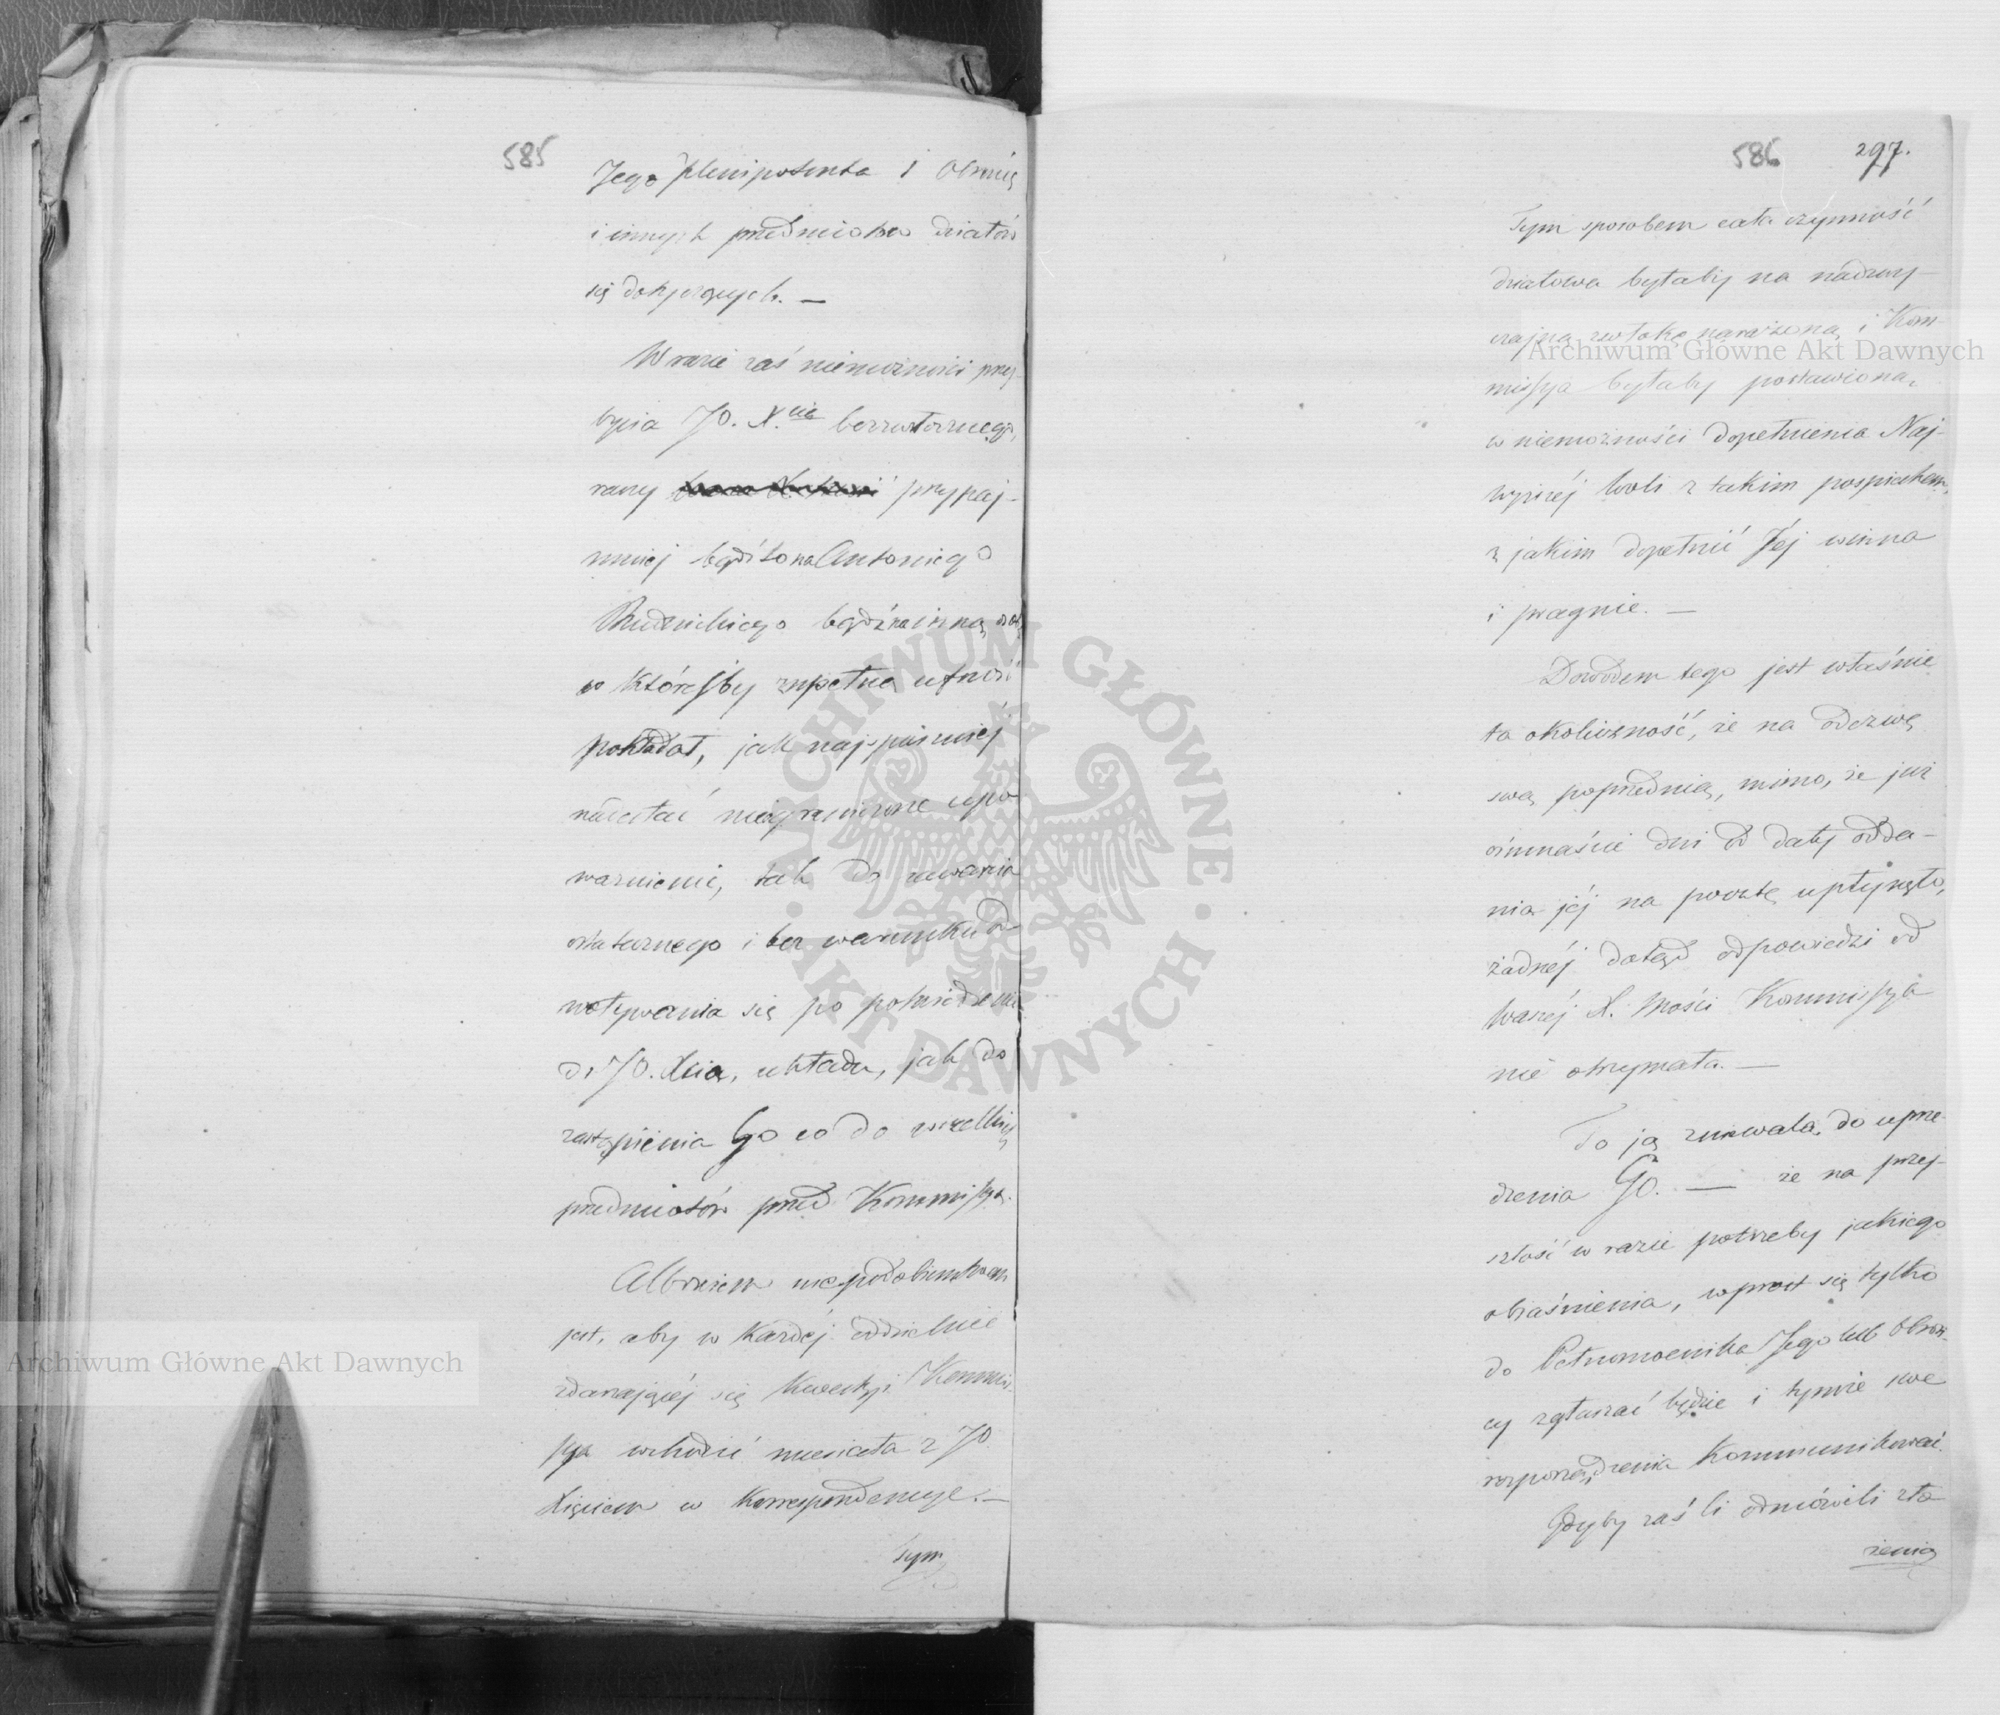 585
Jego plenipotenta i Obrońcę
i innych przedmiotów działów
się dotyczących. —
W razie zaś niemożności przy-
bycia JO. X.cia bezzwłocznego,
raczy przynaj-
mniej bądź to na Antoniego
Rudnickiego bądź na inną osobę
w któréjby zupełną ufność
pokładał, jak najspieszniéj
nadesłać nieograniczone upo
ważnienie, tak do zawarcia
ostatecznego i bez warunku od
woływania się po potwierdzenie
do JO. Xcia, układu, jak do
zastąpienia Go co do wszelkich
przedmiotów przed Kommissyą.
Albowiem niepodobieństwem
jest, aby w każdéj oddzielnie
zdarzającéj się kwestyi Kommis-
sya wchodzić musiała z JO.
Xięciem w korrespondencye. —
Tym
586 297.
Tym sposobem cała czynność
działowa byłaby na nadzwy-
czajną zwłokę narażoną, i Kom-
missya byłaby postawioną,
w niemożności dopełnienia Naj-
wyższéj Woli z takim pospiechem,
z jakim dopełnić Jéj winna
i pragnie. —
Dowodem tego jest właśnie
ta okoliczność, że na odezwę
swą poprzednią, mimo, że już
ośmnaście dni od daty odda-
nia jéj na pocztę upłynęło,
żadnéj dotąd odpowiedzi od
Waszéj X. Mości Kommissya
nie otrzymała. —
To ją zniewala do uprze-
dzenia Go. — że na przy-
szłość w razie potrzeby jakiego
objaśnienia, wprost się tylko
do Pełnomocnika Jego lub Obroń-
cy zgłaszać będzie i tymże swe
rozporządzenia kommunikować.
Gdyby zaś ci odmówili zło
żenia
Archiwum Główne Akt Dawnych
Archiwum Główne Akt Dawnych
ARCHIWUM GŁÓWNE · AKT DAWNYCH ·